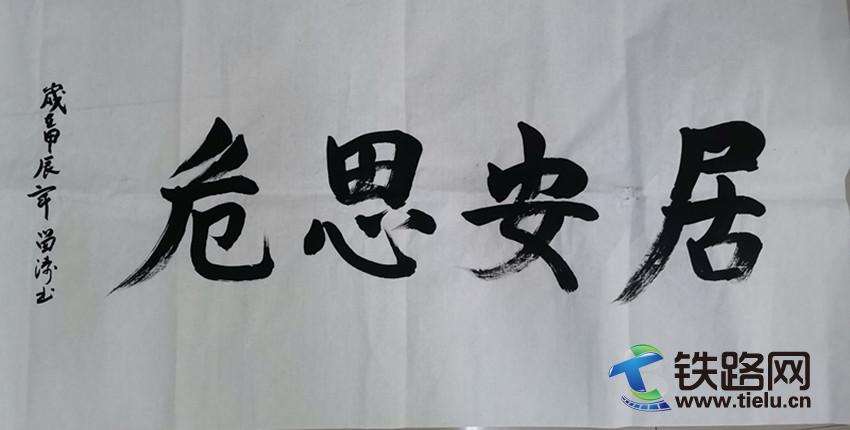 居安思危
歲在甲辰年
铁路网
www.tielu.cn